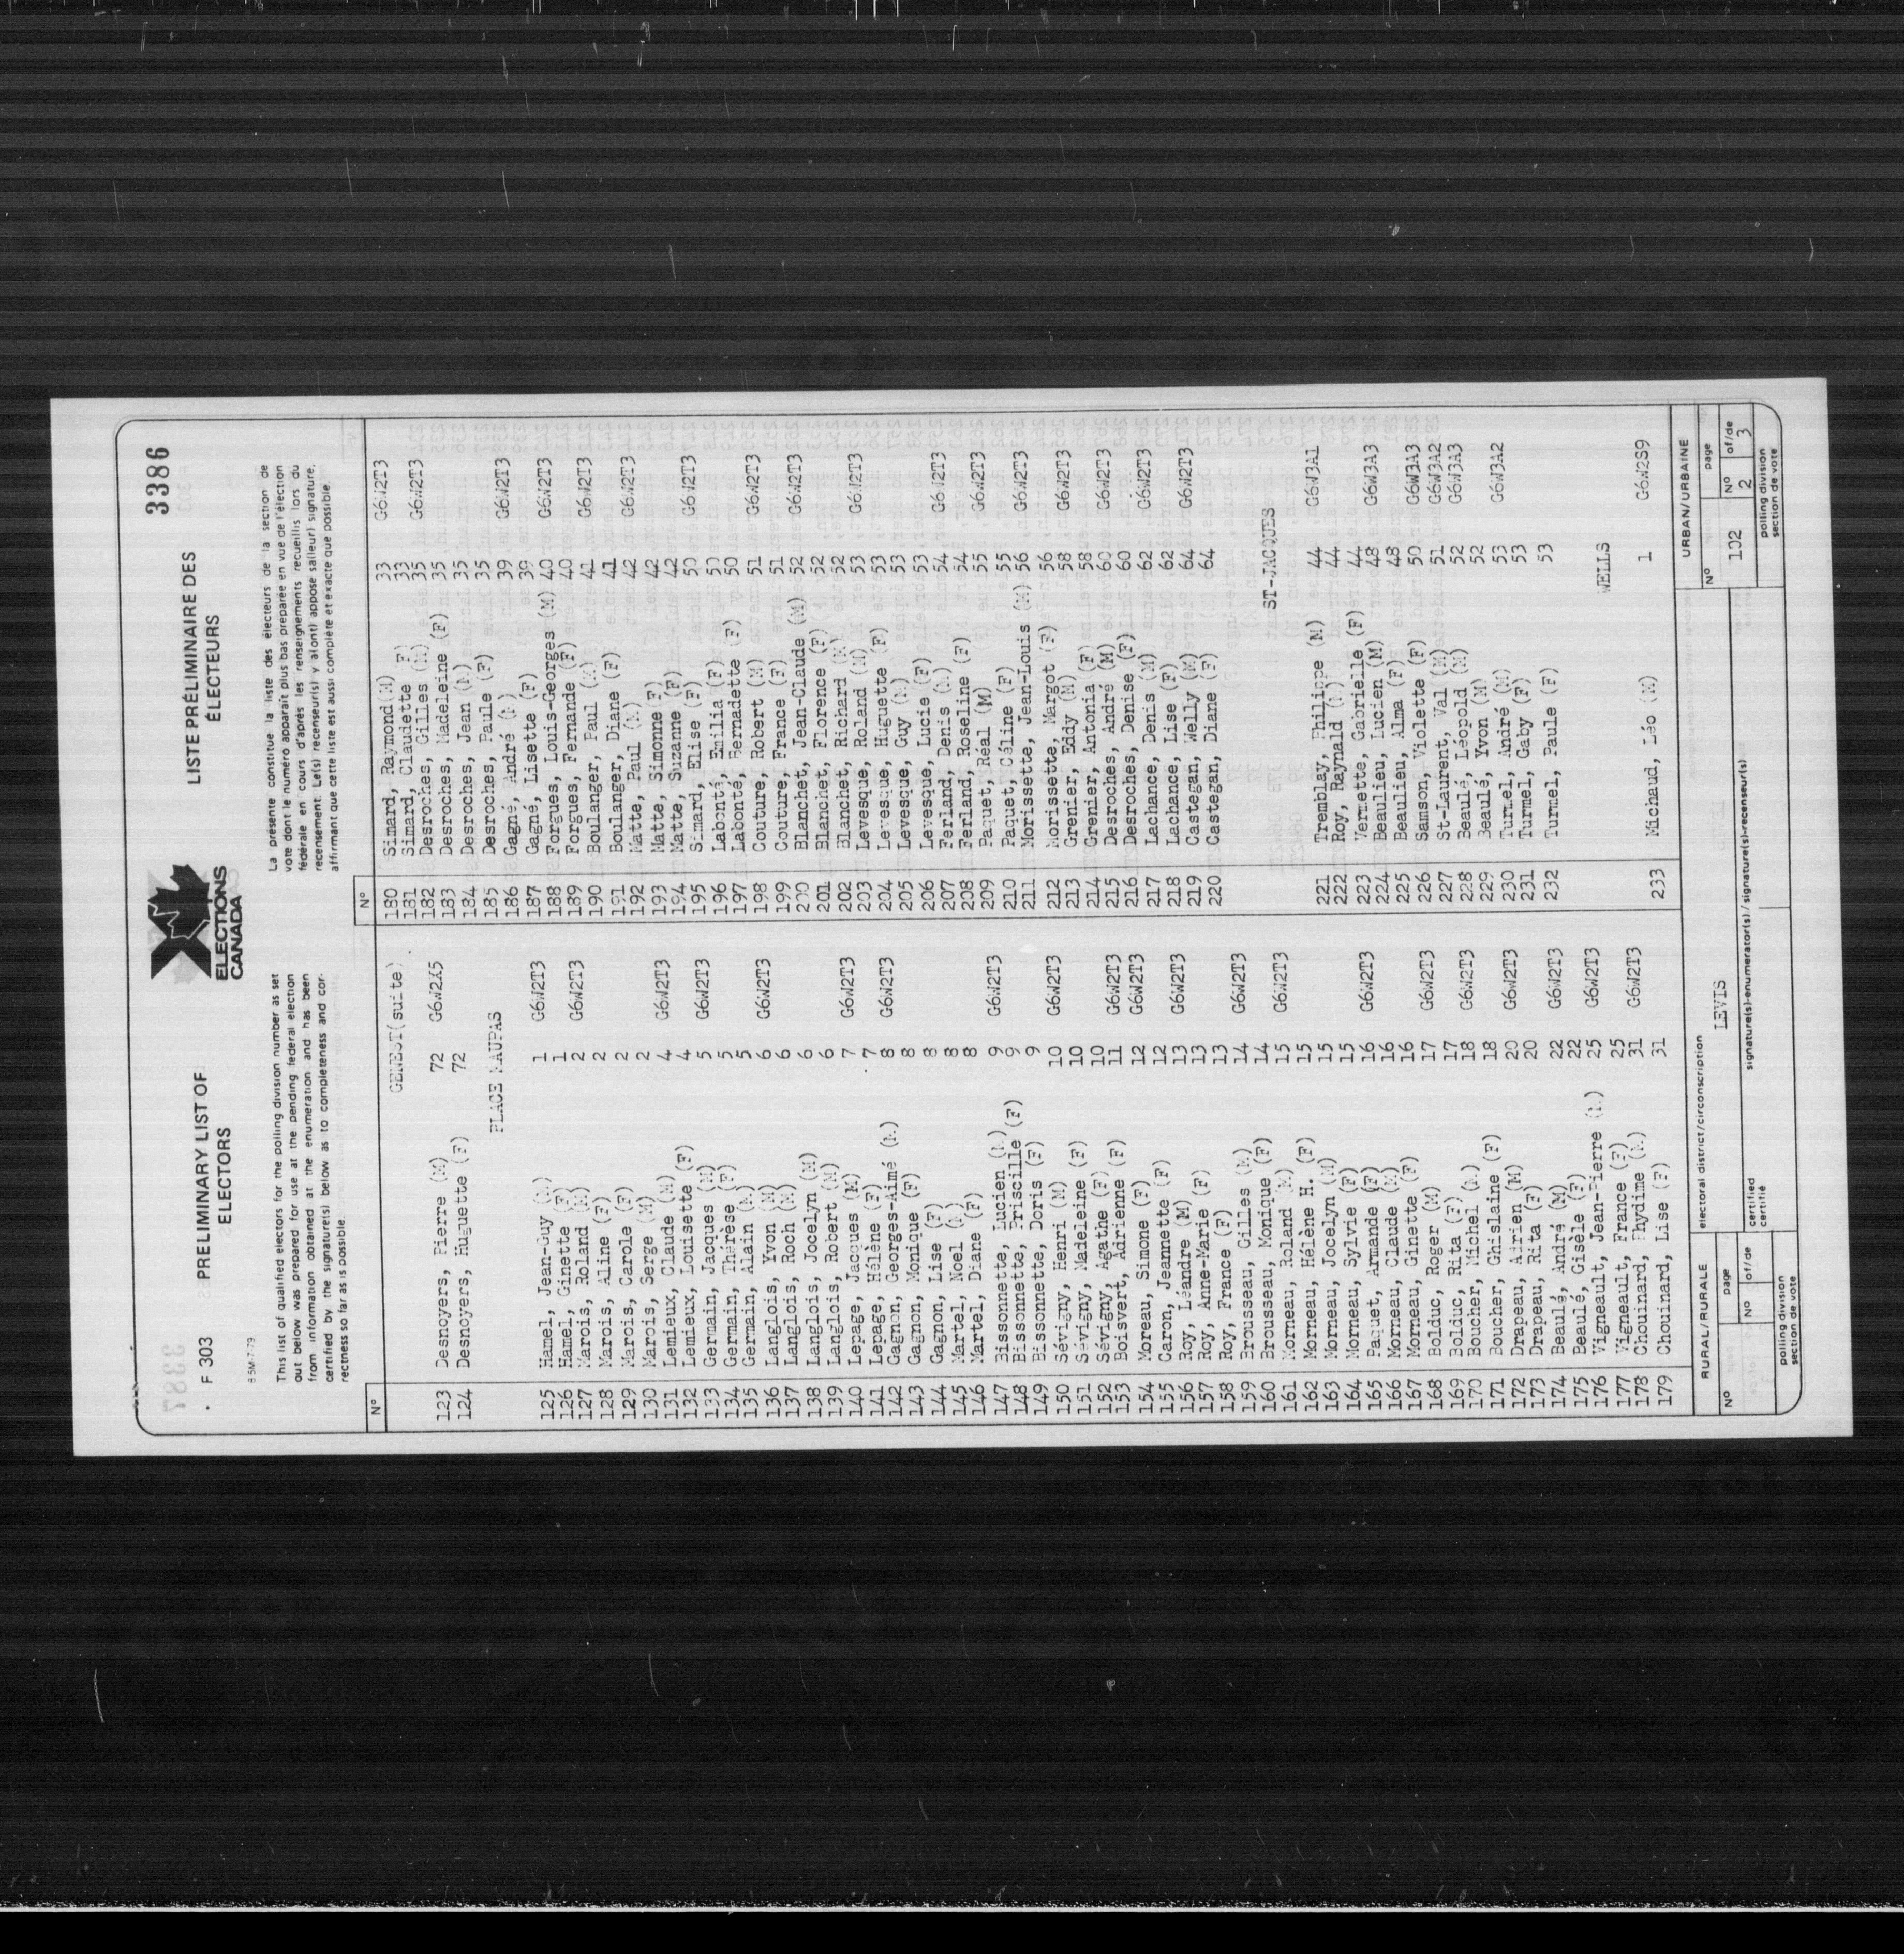 3386
F 303
PRELIMINARY LIST OF
ELECTORS
ELECTIONS
CANADA
LISTE PRÉLIMINAIRE DES
ÉLECTEURS
8 5M-7-79
This list of qualified electors for the polling division number as set
out below was prepared for use at the pending federal election
from information obtained at the enumeration and has been
certified by the signature(s) below as to completeness and cor-
rectness so far as is possible.
La présente constitue la liste des électeurs de la section de
vote dont le numéro apparaît plus bas preparée en vue de l'élection
fédérale en cours d'après les renseignements recueillis lors du
recensement. Le(s) recenseur(s) y a(ont) apposé sa(leur) signature,
affirmant que cette liste est aussi complète et exacte que possible
Nº
GENEST(suite)
123 Desnoyers, Pierre (M) 72 G6W2X5
124 Desnoyers, Huguette (F) 72
PLACE MAUPAS
125 Hamel, Jean-Guy (M) 1 G6W2T3
126 Hamel, Ginette (F) 1
127 Marois, Roland (M) 2 G6W2T3
128 Marois, Aline (F) 2
129 Marois, Carole (F) 2
130 Marois, Serge (M) 2
131 Lemieux, Claude (M) 4 G6W2T3
132 Lemieux, Louisette (F) 4
133 Germain, Jacques (M) 5 G6W2T3
134 Germain, Thérèse (F) 5
135 Germain, Alain (M) 5
136 Langlois, Yvon (M) 6 G6W2T3
137 Langlois, Roch (M) 6
138 Langlois, Jocelyn (M) 6
139 Langlois, Robert (M) 6
140 Lepage, Jacques (M) 7 G6W2T3
141 Lepage, Hélène (F) 7
142 Gagnon, Georges-Aimé (M) 8 G6W2T3
143 Gagnon, Monique (F) 8
144 Gagnon, Lise (F) 8
145 Martel, Noel (M) 8
146 Martel, Diane (F) 8
147 Bissonnette, Lucien (M) 9 G6W2T3
148 Bissonnette, Priscille (F) 9
149 Bissonnette, Doris (F) 9
150 Sévigny, Henri (M) 10 G6W2T3
151 Sévigny, Madeleine (F) 10
152 Sévigny, Agathe (F) 10
153 Boisvert, Adrienne (F) 11 G6W2T3
154 Moreau, Simone (F) 12 G6W2T3
155 Caron, Jeannette (F) 12
156 Roy, Léandre (M) 13 G6W2T3
157 Roy, Anne-Marie (F) 13
158 Roy, France (F) 13
159 Brousseau, Gilles (M) 14 G6W2T3
160 Brousseau, Monique (F) 14
161 Morneau, Roland (M) 15 G6W2T3
162 Morneau, Hélène H. (F) 15
163 Morneau, Jocelyn (M) 15
164 Morneau, Sylvie (F) 15
165 Paquet, Armande (F) 16 G6W2T3
166 Morneau, Claude (M) 16
167 Morneau, Ginette (F) 16
168 Bolduc, Roger (M) 17 G6W2T3
169 Bolduc, Rita (F) 17
170 Boucher, Michel (M) 18 G6W2T3
171 Boucher, Ghislaine (F) 18
172 Drapeau, Adrien (M) 20 G6W2T3
173 Drapeau, Rita (F) 20
174 Beaulé, André (M) 22 G6W2T3
175 Beaulé, Gisèle (F) 22
176 Vigneault, Jean-Pierre (M) 25 G6W2T3
177 Vigneault, France (F) 25
178 Chouinard, Phydime (M) 31 G6W2T3
179 Chouinard, Lise (F) 31
Nº
180 Simard, Raymond(M) 33 G6W2T3
181 Simard, Claudette F) 33
182 Desroches, Gilles (M) 35 G6W2T3
183 Desroches, Madeleine (F) 35
184 Desroches, Jean (M) 35
185 Desroches, Paule (F) 35
186 Gagné, André (M) 39 G6W2T3
187 Gagné, Lisette (F) 39
188 Forgues, Louis-Georges (M) 40 G6W2T3
189 Forgues, Fernande (F) 40
190 Boulanger, Paul (M) 41 G6W2T3
191 Boulanger, Diane (F) 41
192 Matte, Paul (M) 42 G6W2T3
193 Matte, Simonne (F) 42
194 Matte, Suzanne (F) 42
195 Simard, Elise (F) 50 G6W2T3
196 Labonté, Emilia (F) 50
197 Labonté, Bernadette (F) 50
198 Couture, Robert (M) 51 G6W2T3
199 Couture, France (F) 51
200 Blanchet, Jean-Claude (M) 52 G6W2T3
201 Blanchet, Florence (F) 52
202 Blanchet, Richard (M) 52
203 Levesque, Roland (M) 53 G6W2T3
204 Levesque, Huguette (F) 53
205 Levesque, Guy (M) 53
206 Levesque, Lucie (F) 53
207 Ferland, Denis (M) 54 G6W2T3
208 Ferland, Roseline (F) 54
209 Paquet, Réal (M) 55 G6W2T3
210 Paquet, Céline (F) 55
211 Morissette, Jean-Louis (M) 56 G6W2T3
212 Morissette, Margot (F) 56
213 Grenier, Eddy (M) 58 G6W2T3
214 Grenier, Antonia (F) 58
215 Desroches, André (M) 60 G6W2T3
216 Desroches, Denise (F) 60
217 Lachance, Denis (M) 62 G6W2T3
218 Lachance, Lise (F) 62
219 Castegan, Welly (M) 64 G6W2T3
220 Castegan, Diane (F) 64
ST-JACQUES
221 Tremblay, Philippe (M) 44 G6W3A1
222 Roy, Raynald (M) 44
223 Vermette, Gabrielle (F) 44
224 Beaulieu, Lucien (M) 48 G6W3A3
225 Beaulieu, Alma (F) 48
226 Samson, Violette (F) 50 G6W3A3
227 St-Laurent, Val (M) 51 G6W3A2
228 Beaulé, Léopold (M) 52 G6W3A3
229 Beaulé, Yvon (M) 52
230 Turmel, André (M) 53 G6W3A2
231 Turmel, Gaby (F) 53
232 Turmel, Paule (F) 53
WELLS
233 Michaud, Léo (M) 1 G6W2S9
RURAL/RURALE
Nº
page
Nº of/de
polling division
section de vote
electoral district/circonscription
LEVIS
certified
certifié
signature(s)-enumerator(s)/signature(s)-recenseur(s)
URBAN/URBAINE
Nº
102
page
Nº of/de
2 3
polling division
section de vote